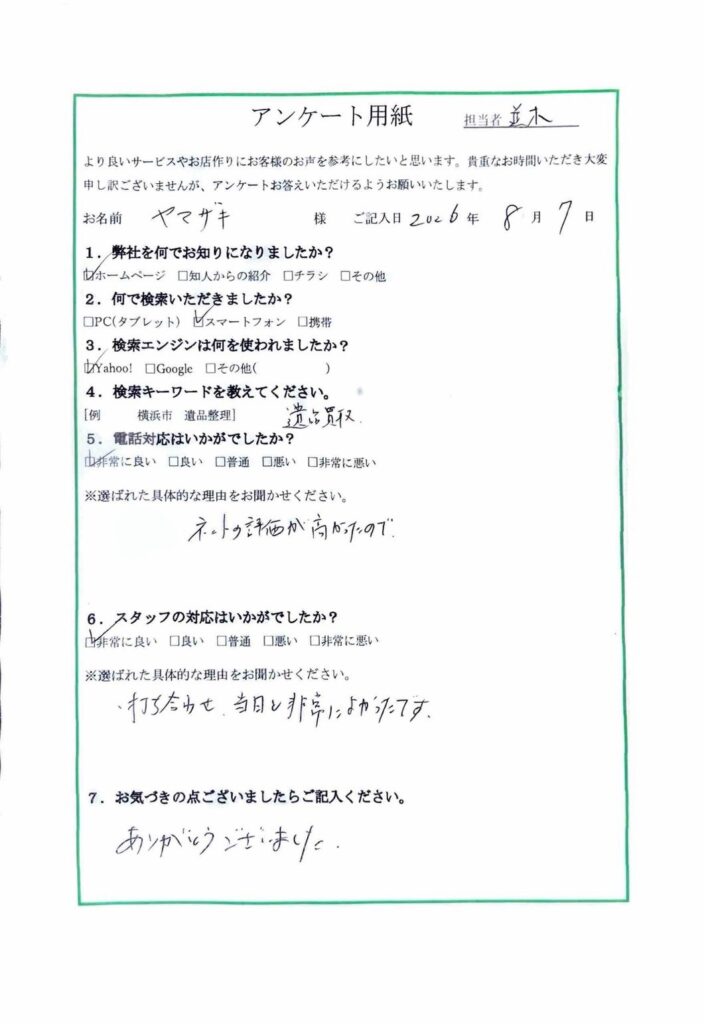 アンケート用紙 担当者 並木
より良いサービスやお店作りにお客様のお声を参考にしたいと思います。貴重なお時間いただき大変
申し訳ございませんが、アンケートお答えいただけるようお願いいたします。
お名前 ヤマザキ 様 ご記入日 2026 年 8 月 7 日
1．弊社を何でお知りになりましたか？
☑ホームページ □知人からの紹介 □チラシ □その他
2．何で検索いただきましたか？
□PC(タブレット) ☑スマートフォン □携帯
3．検索エンジンは何を使われましたか？
☑Yahoo! □Google □その他( )
4．検索キーワードを教えてください。
[例 横浜市 遺品整理] 遺品買取
5．電話対応はいかがでしたか？
☑非常に良い □良い □普通 □悪い □非常に悪い
※選ばれた具体的な理由をお聞かせください。
ネットの評価が高かったので
6．スタッフの対応はいかがでしたか？
☑非常に良い □良い □普通 □悪い □非常に悪い
※選ばれた具体的な理由をお聞かせください。
・打ち合わせ、当日と非常によかったです。
7．お気づきの点ございましたらご記入ください。
ありがとうございました.